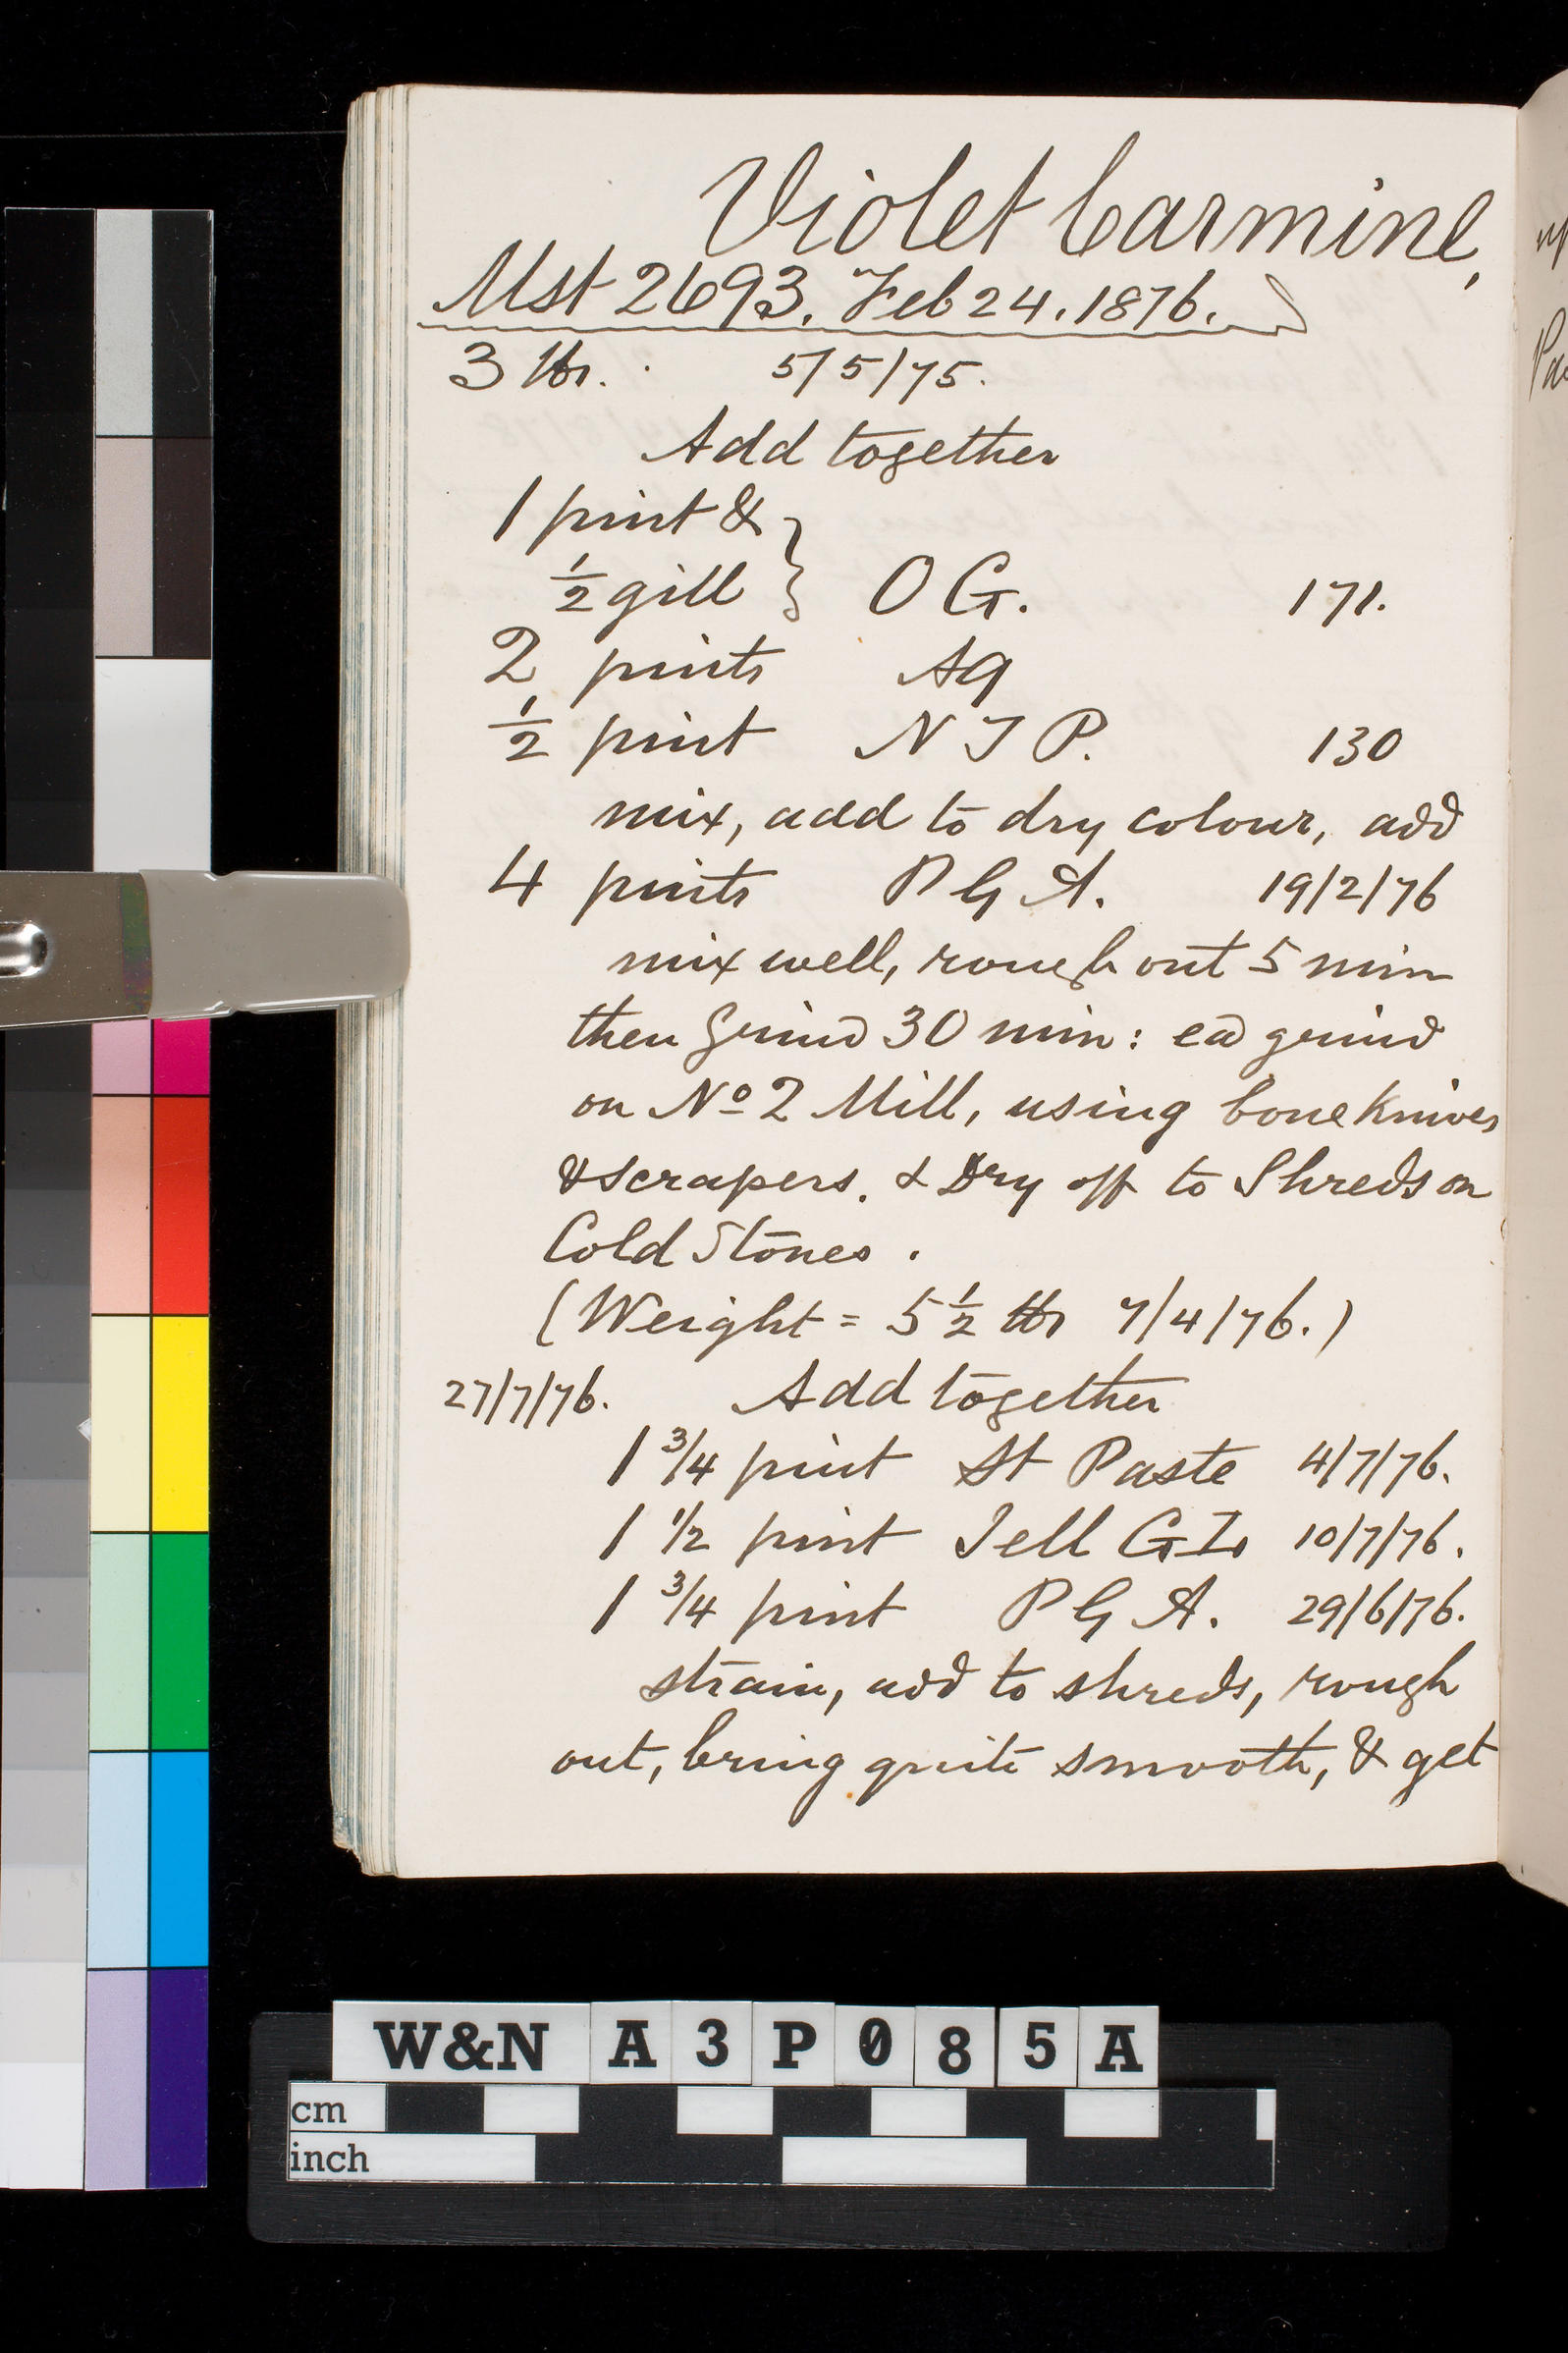 Violet Carmine,
Mst 2693. Feb 24. 1876.
3 lbs. 5/5/75.
Add together
1 pint &
1/2 gill } O G. 171.
2 pints Aq
1/2 pint N T P. 130
mix, add to dry colour, add
4 pints P G A. 19/2/76
mix well, rough out 5 min
then Grind 30 min: ea grind
on No 2 Mill, using bone knives
& scrapers. & Dry off to Shreds on
Cold Stones.
(Weight = 5 1/2 lbs 7/4/76.)
27/7/76. Add together
1 3/4 pint St Paste 4/7/76.
1 1/2 pint Jell G I 10/7/76.
1 3/4 pint P G A. 29/6/76.
strain, add to shreds, rough
out, bring quite smooth, & get
W&N A3P085A
cm
inch